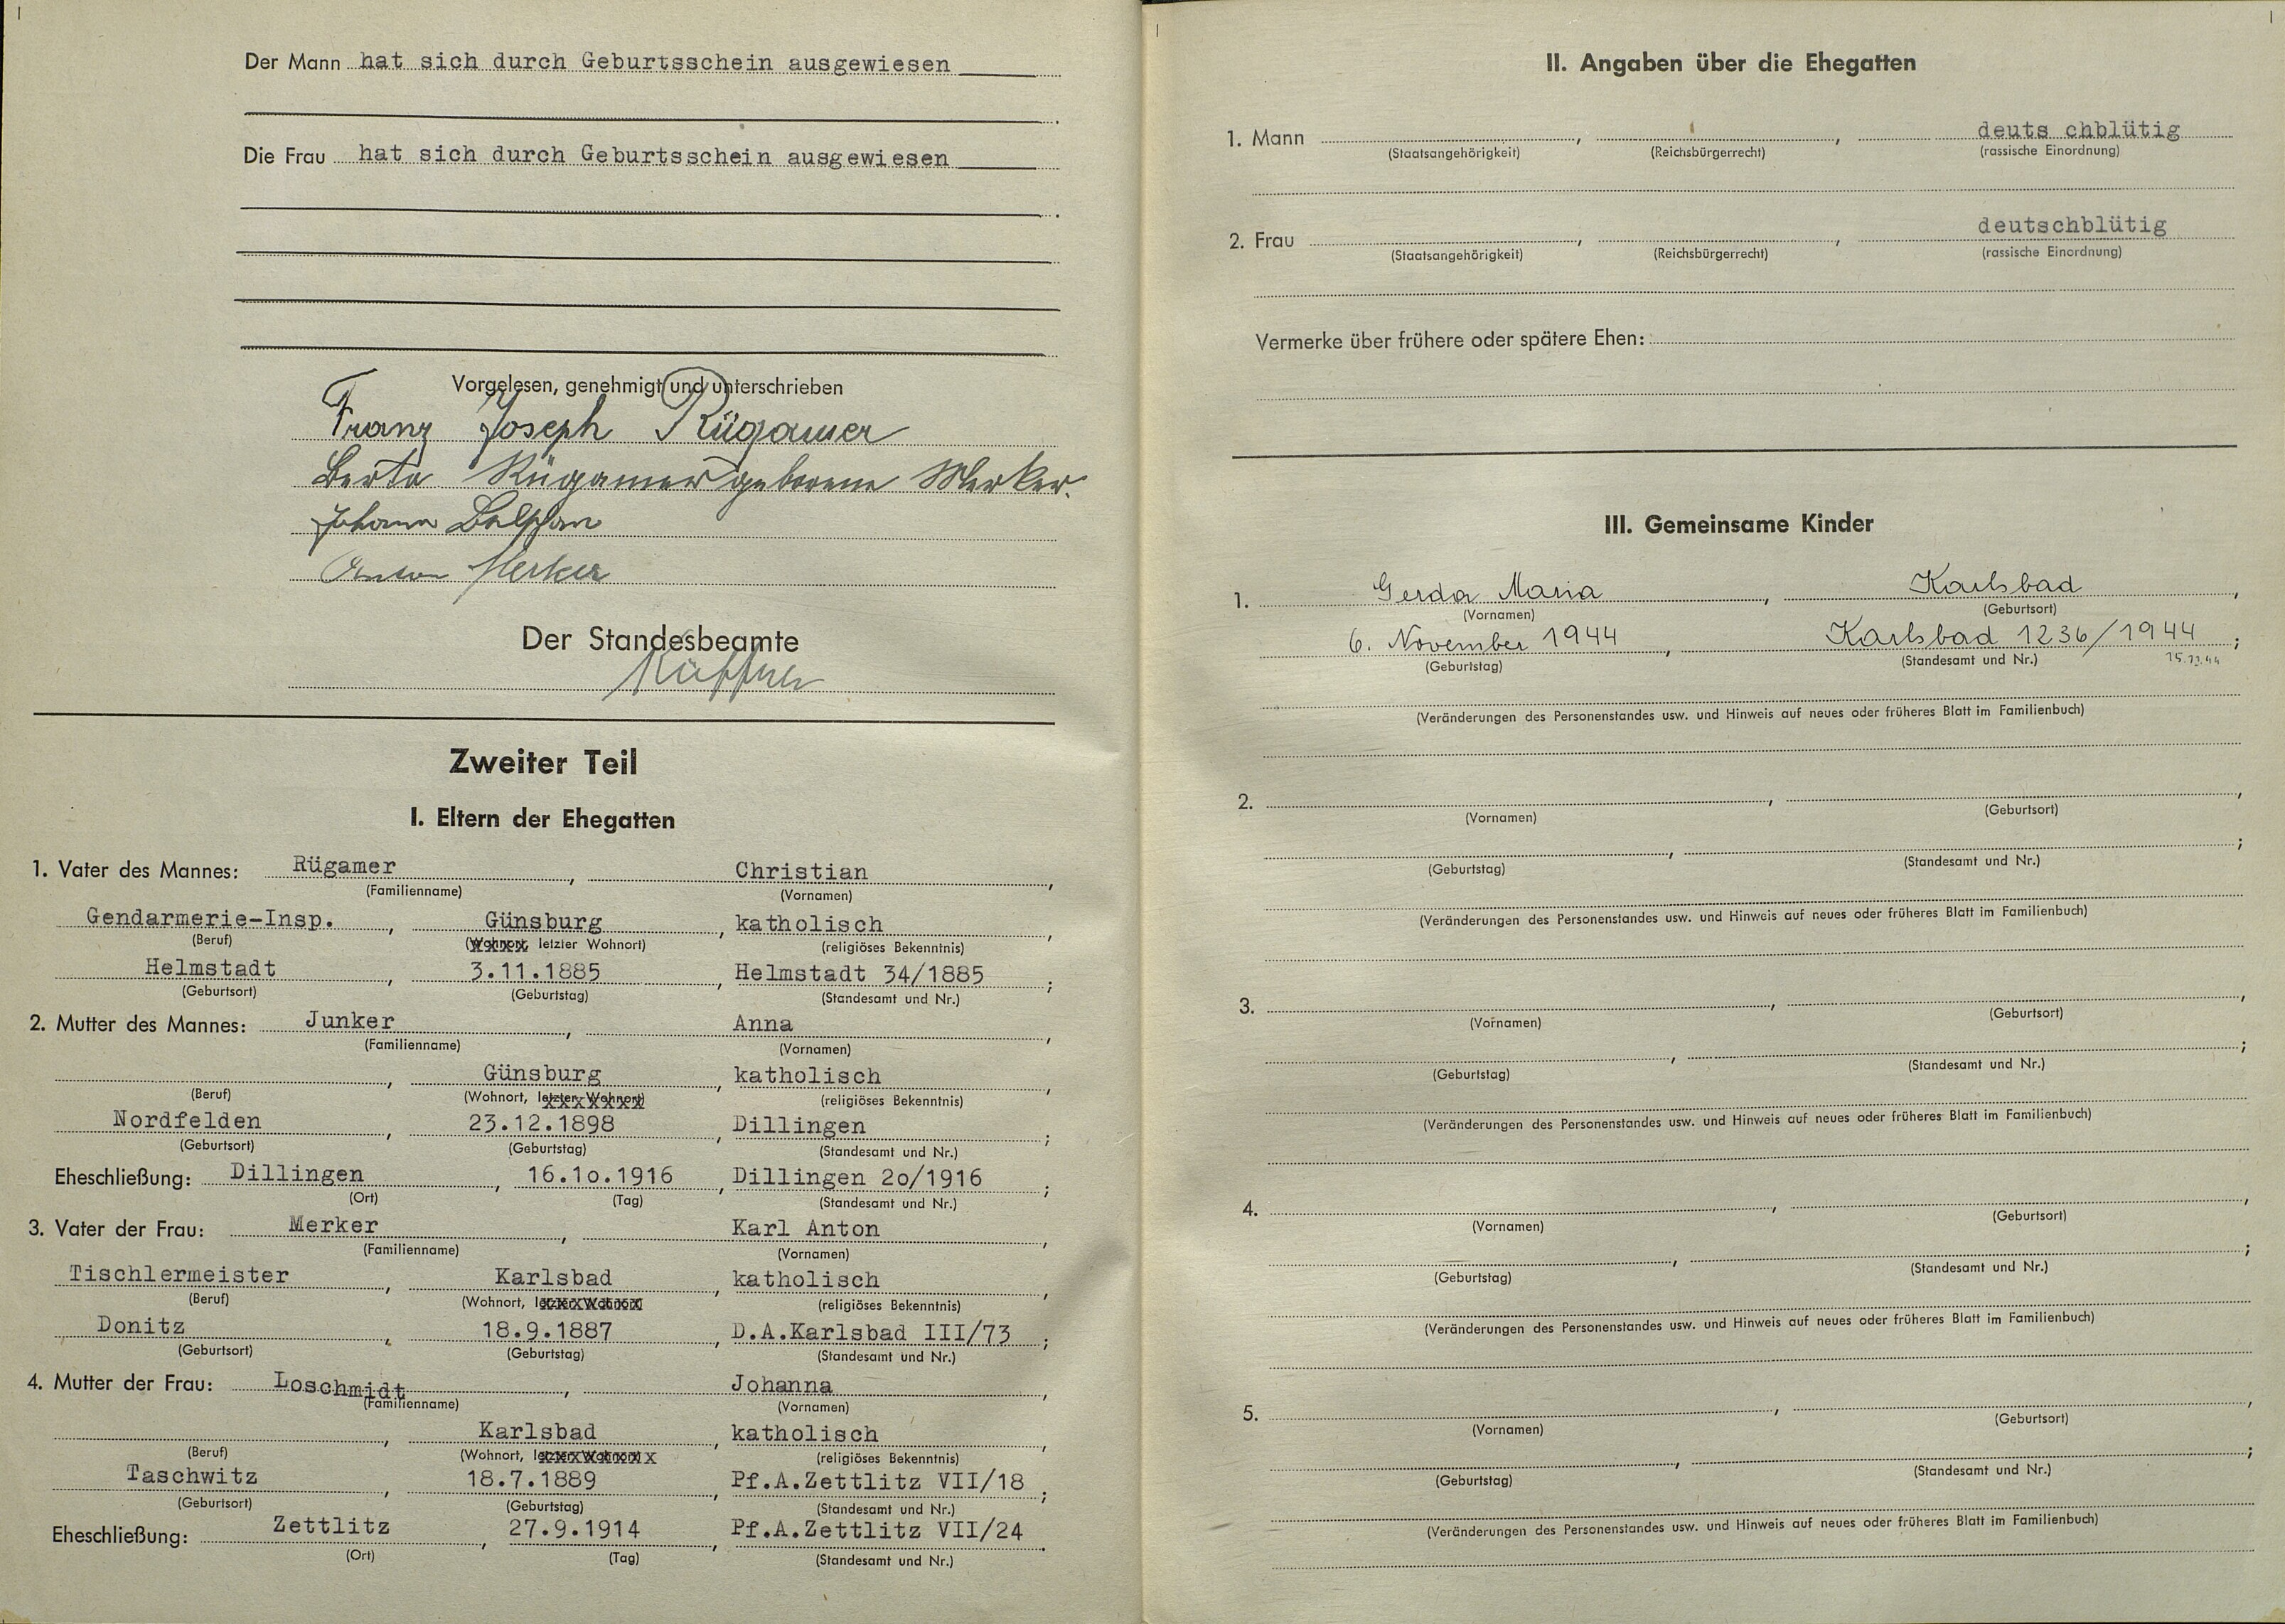 Der Mann hat sich durch Geburtsschein ausgewiesen
Die Frau hat sich durch Geburtsschein ausgewiesen
Vorgelesen, genehmigt und unterschrieben
Franz Joseph Rügamer
Berta Rügamer geborene Merker.
Johann
Anton Merker
Der Standesbeamte
Zweiter Teil
I. Eltern der Ehegatten
1. Vater des Mannes: Rügamer, Christian,
(Familienname) (Vornamen)
Gendarmerie-Insp., Günsburg, katholisch,
(Beruf) (Wohnort, letzter Wohnort) (religiöses Bekenntnis)
Helmstadt, 3.11.1885, Helmstadt 34/1885;
(Geburtsort) (Geburtstag) (Standesamt und Nr.)
2. Mutter des Mannes: Junker, Anna,
(Familienname) (Vornamen)
, Günsburg, katholisch,
(Beruf) (Wohnort, letzter Wohnort) (religiöses Bekenntnis)
Nordfelden, 23.12.1898, Dillingen;
(Geburtsort) (Geburtstag) (Standesamt und Nr.)
Eheschließung: Dillingen, 16.1o.1916, Dillingen 2o/1916;
(Ort) (Tag) (Standesamt und Nr.)
3. Vater der Frau: Merker, Karl Anton,
(Familienname) (Vornamen)
Tischlermeister, Karlsbad, katholisch,
(Beruf) (Wohnort, letzter Wohnort) (religiöses Bekenntnis)
Donitz, 18.9.1887, D.A.Karlsbad III/73;
(Geburtsort) (Geburtstag) (Standesamt und Nr.)
4. Mutter der Frau: Loschmidt, Johanna,
(Familienname) (Vornamen)
, Karlsbad, katholisch,
(Beruf) (Wohnort, letzter Wohnort) (religiöses Bekenntnis)
Taschwitz, 18.7.1889, Pf.A.Zettlitz VII/18;
(Geburtsort) (Geburtstag) (Standesamt und Nr.)
Eheschließung: Zettlitz, 27.9.1914, Pf.A.Zettlitz VII/24.
(Ort) (Tag) (Standesamt und Nr.)
II. Angaben über die Ehegatten
1. Mann , , deuts chblütig
(Staatsangehörigkeit) (Reichsbürgerrecht) (rassische Einordnung)
2. Frau , , deutschblütig
(Staatsangehörigkeit) (Reichsbürgerrecht) (rassische Einordnung)
Vermerke über frühere oder spätere Ehen:
III. Gemeinsame Kinder
1. Gerda Maria, Karlsbad,
(Vornamen) (Geburtsort)
6. November 1944, Karlsbad 1236/1944;
(Geburtstag) (Standesamt und Nr.)
(Veränderungen des Personenstandes usw. und Hinweis auf neues oder früheres Blatt im Familienbuch)
2. , ,
(Vornamen) (Geburtsort)
, ;
(Geburtstag) (Standesamt und Nr.)
(Veränderungen des Personenstandes usw. und Hinweis auf neues oder früheres Blatt im Familienbuch)
3. , ,
(Vornamen) (Geburtsort)
, ;
(Geburtstag) (Standesamt und Nr.)
(Veränderungen des Personenstandes usw. und Hinweis auf neues oder früheres Blatt im Familienbuch)
4. , ,
(Vornamen) (Geburtsort)
, ;
(Geburtstag) (Standesamt und Nr.)
(Veränderungen des Personenstandes usw. und Hinweis auf neues oder früheres Blatt im Familienbuch)
5. , ,
(Vornamen) (Geburtsort)
, ;
(Geburtstag) (Standesamt und Nr.)
(Veränderungen des Personenstandes usw. und Hinweis auf neues oder früheres Blatt im Familienbuch)